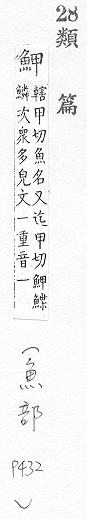 28
類篇
魻
轄甲切魚名又迄甲切魻鰈
鱗次衆多皃文一重音一
(魚部
P432
)